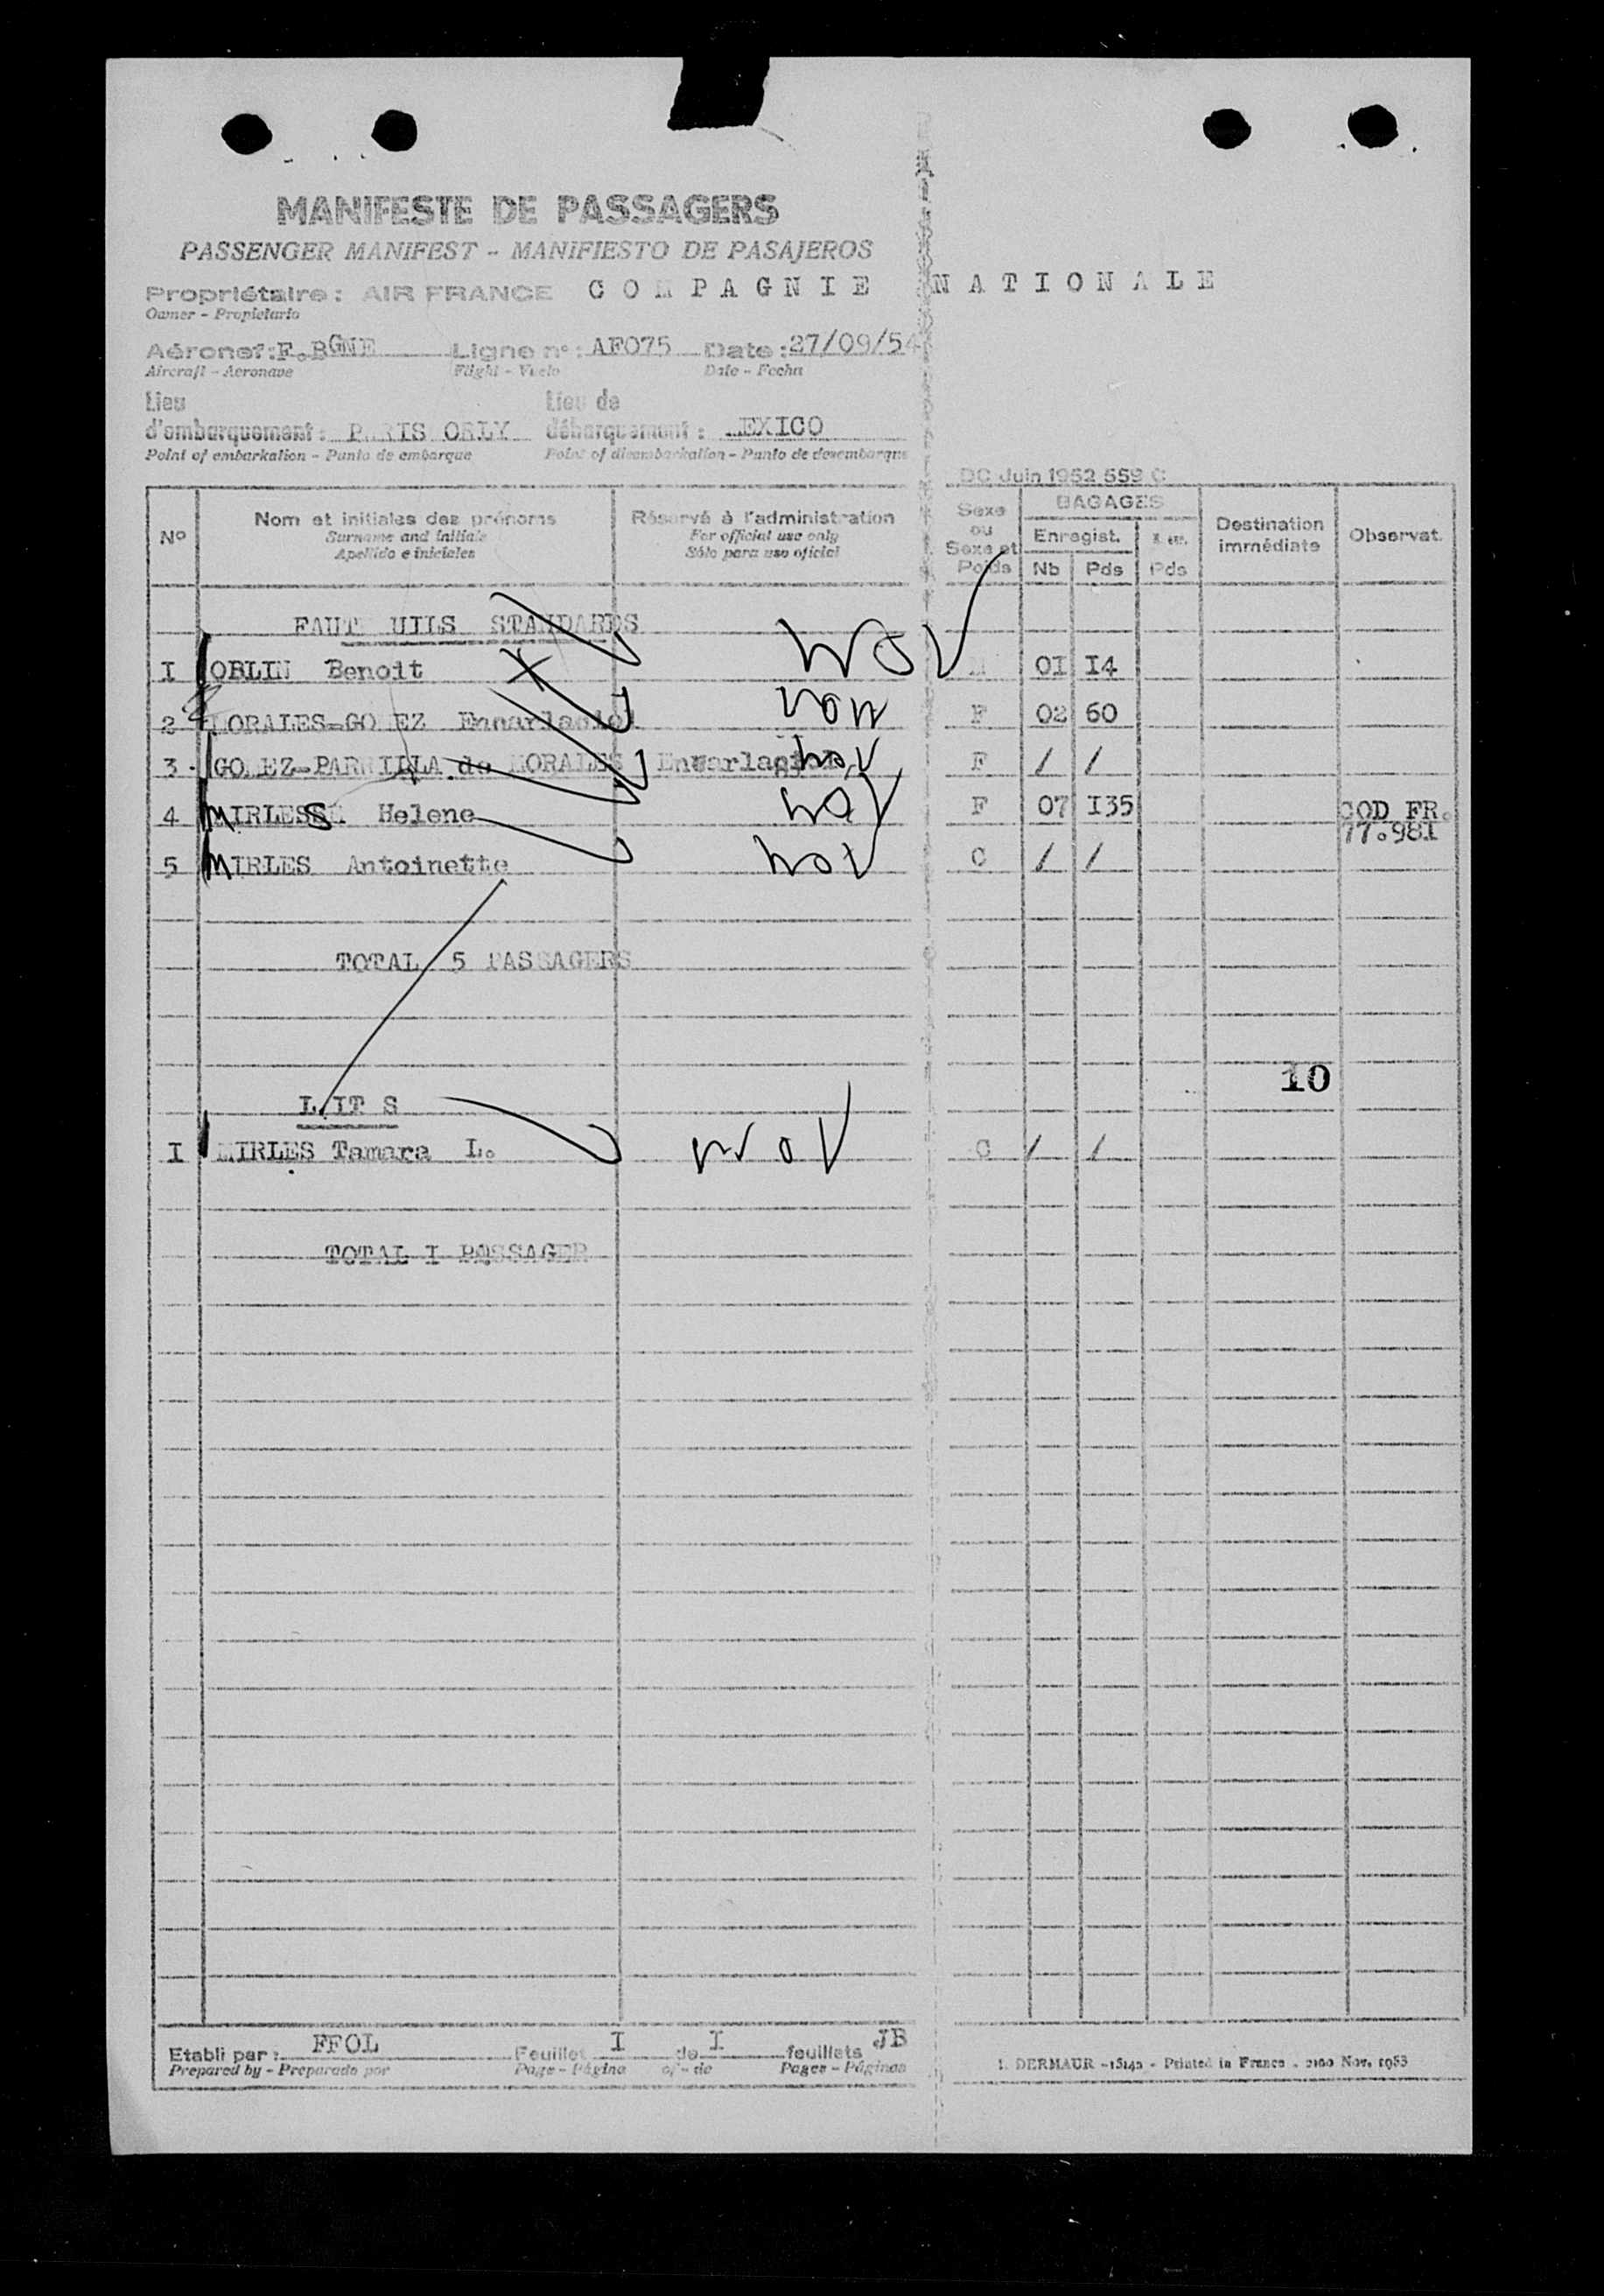 MANIFESTE DE PASSAGERS
PASSENGER MANIFEST - MANIFIESTO DE PASAJEROS
Propriétaire : AIR FRANCE COMPAGNIE NATIONALE
Owner - Propietario
Aéronef : F.BGNE Ligne n° : AF075 Date : 27/09/54
Aircraft - Aeronave Flight - Vuelo Date - Fecha
Lieu Lieu de
d'embarquement : PARIS ORLY débarquement : MEXICO
Point of embarkation - Punto de embarque Point of disembarkation - Punto de desembarque
DC Juin 1952 559 C
Nº Nom et initiales des prénoms Réservé à l'administration Sexe ou Sexe et Poids BAGAGES Destination immédiate Observat.
Surname and initials For official use only Enregist.
Apellido e iniciales Sólo para uso oficial Nb Pds Pds
FAUT UILS STANDARDS
I OBLIN Benoit non M 01 I4
2 MORALES-GOMEZ non F 02 60
3 GOMEZ-PARRILLA de MORALES non F / /
4 MIRLESSE Helene non F 07 I35 COD FR.
77.981
5 MIRLES Antoinette non C / /
TOTAL 5 PASSAGERS
10
LIT S
I MIRLES Tamara L. non C / /
TOTAL I PASSAGER
Etabli par : FFOL Feuillet I de I feuillets JB
Prepared by - Preparado por Page - Página of - de Pages - Páginas
I. DERMAUR - 15142 - Printed in France - 2100 Nov. 1953